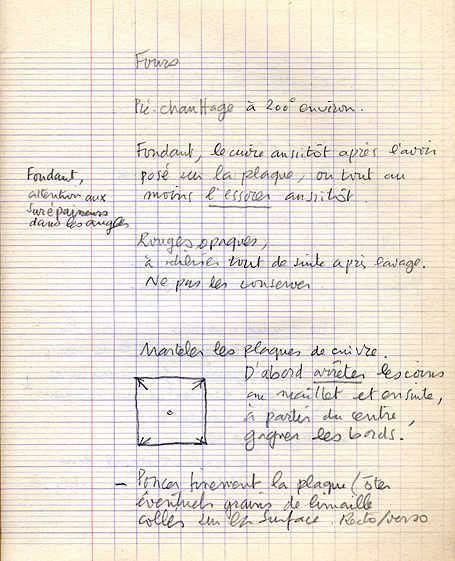 Fours
Pré-chauffage à 200° environ.
Fondant, le cuire aussitôt après l'avoir
posé sur la plaque, ou tout au
moins l'essorer aussitôt.
Fondant,
attention aux
surépaisseurs
dans les angles
Rouges opaques,
à utiliser tout de suite après lavage.
Ne pas les conserver
Marteler les plaques de cuivre.
D'abord arrêter les coins
au maillet et ensuite,
à partir du centre,
gagner les bords.
– Poncer finement la plaque (ôter
éventuels grains de limaille
collés sur la surface. Recto/verso